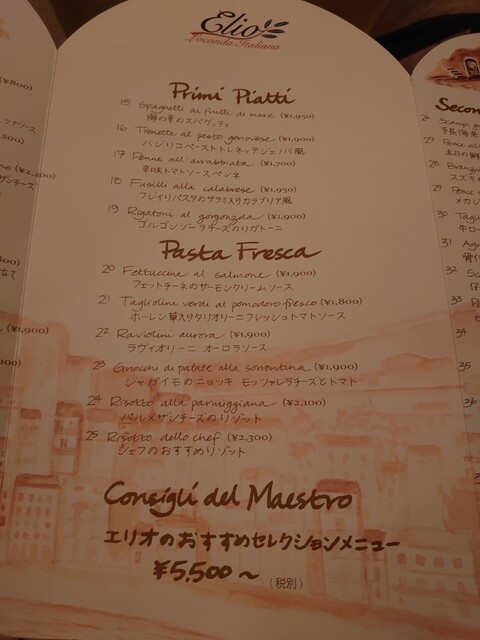 Elio
Locanda Italiana
Primi Piatti
15 Spaghetti ai frutti di mare (¥1,950)
海の幸のスパゲッティ
16 Trenette al pesto genovese (¥1,900)
バジリコペーストトレネッテジェノバ風
17 Penne all'arrabbiata (¥1,700)
辛口トマトソースペンネ
18 Fusilli alla calabrese (¥1,950)
フジイリパスタのサラミ入りカラブリア風
19 Rigatoni al gorgonzola (¥1,900)
ゴルゴンゾーラチーズのリガトーニ
Pasta Fresca
20 Fettuccine al salmone (¥1,900)
フェットチーネのサーモンクリームソース
21 Tagliolini verdi al pomodoro fresco (¥1,800)
ホーレン草入りタリオリーニフレッシュトマトソース
22 Raviolini aurora (¥1,900)
ラヴィオリーニ オーロラソース
23 Gnocchi di patate alla sorrentina (¥1,900)
ジャガイモのニョッキ モッツァレラチーズとトマト
24 Risotto alla parmiggiana (¥2,100)
パルメザンチーズのリゾット
25 Risotto dello chef (¥2,300)
シェフのおすすめリゾット
Consigli del Maestro
エリオのおすすめセレクションメニュー
¥5,500~
(税別)
¥800)
ソース
200)
(¥2,200)
チーズ
000)
仕立て
(¥1,900)
900)
Secon
26 Scampi
手長海老
27 Pesce al
本日の鮮
28 Branzi
スズキ
29 Pesce
メカジ
30 Tagli
牛ロー
31 Agn
骨付
32 Sc
仔
33
34
35
36